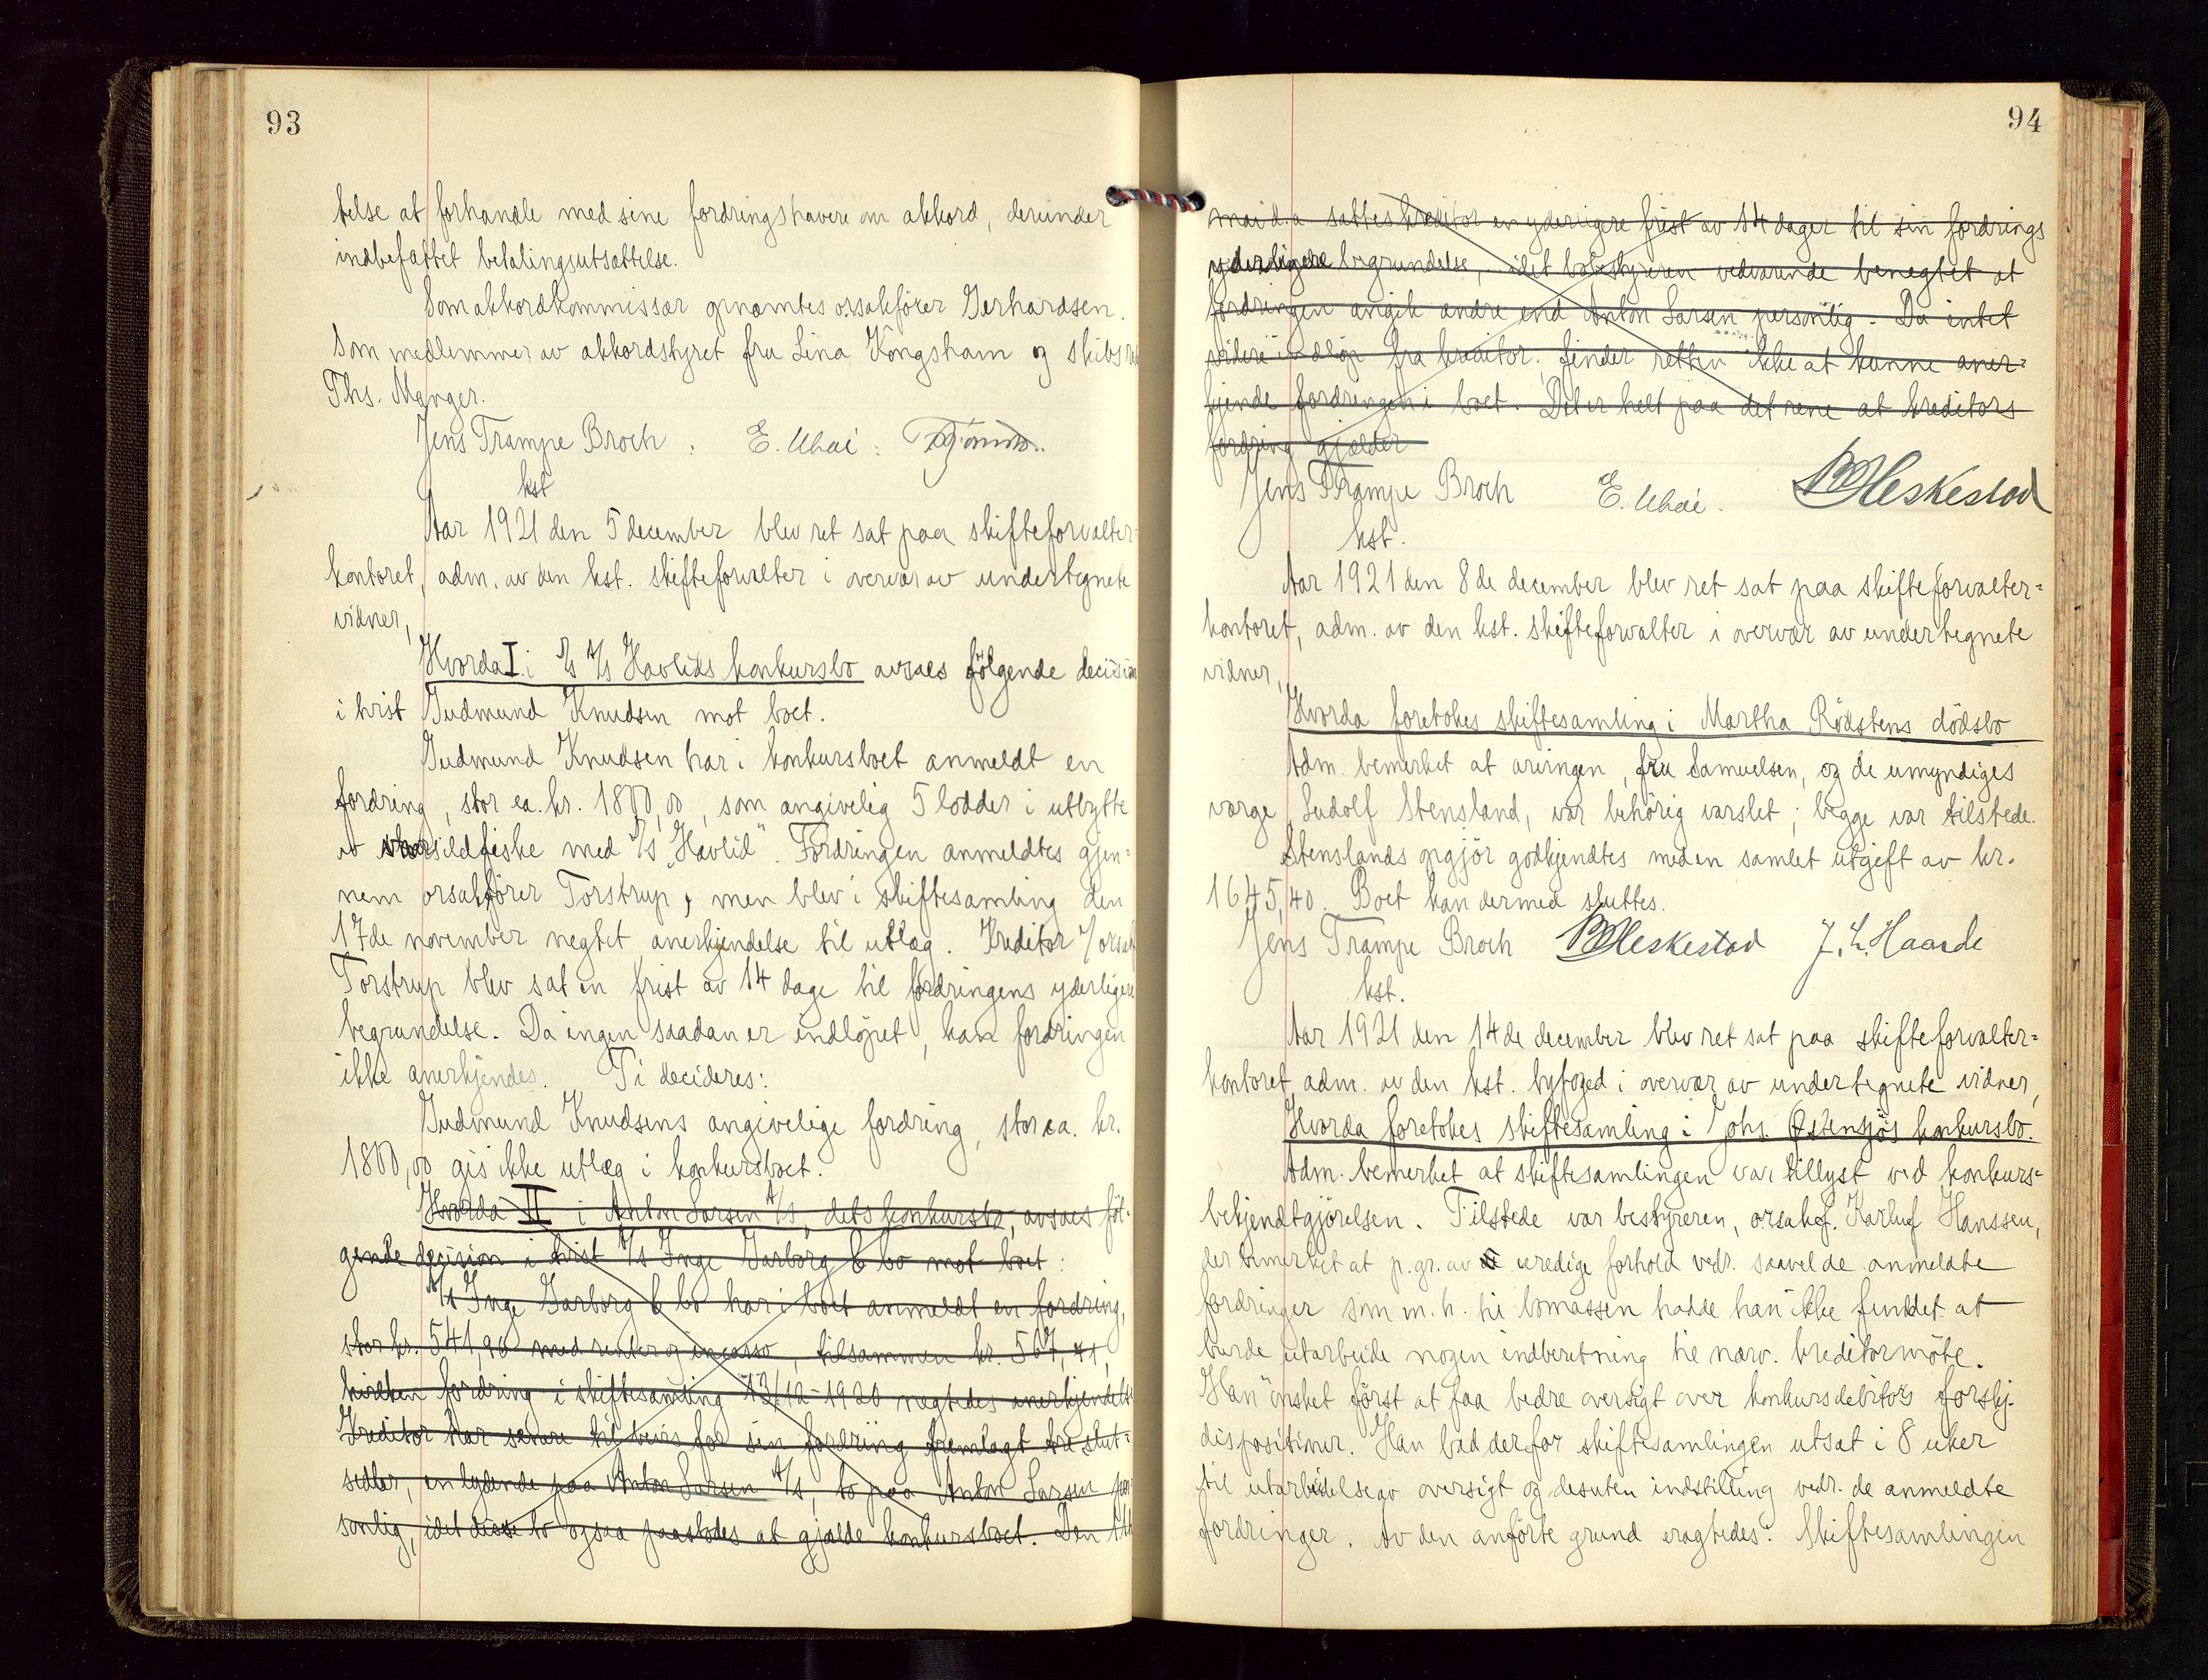 93
telse at forhandle med sine fordringshavere om akkord, derunder
indbefattet betalingsutsættelse.
Som akkordkommissær opnævntes o.rsakfører Gerhardsen.
Som medlemmer av akkordstyret fru Lina Kongshavn og skibsred
Ths. Manger.
Jens Trampe Broch. E. Ubøe.
kst
Aar 1921 den 5 december blev ret sat paa skifteforvalter-
kontoret, adm. av den kst. skifteforvalter i overvær av undertegnete
vidner,
Hvorda I. i D/S A/S Havlids konkursbo avsaes følgende decision
i tvist Gudmund Knudsen mot boet.
Gudmund Knudsen har i konkursboet anmeldt en
fordring, stor ca. kr. 1800,00, som angivelig 5 lodder i utbytte
av storsildfiske med D/S "Havlid". Fordringen anmeldtes gjen-
nem orsakfører Torstrup, men blev i skiftesamling den
17de november negtet anerkjendelse til utlæg. Kreditor v/ orsakf
Torstrup blev sat en frist av 14 dage til fordringens yderligere
begrundelse. Da ingen saadan er indløpet, kan fordringen
ikke anerkjendes. Ti decideres:
Gudmund Knudsens angivelige fordring, stor ca. kr.
1800,00 gis ikke utlæg i konkursboet.
Hvorda II i Anton Larsen A/S, dets konkursbo, avsaes føl-
gende decision i tvist A/S Inge Garborg & Co mot boet:
A/S Inge Garborg & Co har i boet anmeldt en fordring,
stor kr. 541,96 med renter og incasso, tilsammen kr. 567,41,
hvilken fordring i skiftesamling 13/12-1920 nægtedes anerkjendelse
Kreditor har senere til bevis for sin fordring fremlagt tre slut-
sedler, en lydende paa Anton Larsen A/S, to paa Anton Larsen per-
sonlig, idet disse to ogsaa paastodes at gjælde konkursboet. Den
94
mai d.a sattes kreditor en yderligere frist av 14 dager til sin fordrings
yderligere begrundelse, idet bobestyreren vedvarende benegtet at
fordringen angik andre end Anton Larsen personlig. Da intet
videre indløp fra kreditor, finder retten ikke at kunne aner-
kjende fordringen i boet. Det er helt paa det rene at kreditors
fordring gjælder
Jens Trampe Broch E. Ubøe. B Heskestad
kst.
Aar 1921 den 8de december blev ret sat paa skifteforvalter-
kontoret, adm. av den kst. skifteforvalter i overvær av undertegnete
vidner,
Hvorda foretokes skiftesamling i Martha Rödstens dödsbo
Adm. bemerket at arvingen, fru Samuelsen, og de umyndiges
værge Ludolf Stensland, var behörig varslet; begge var tilstede.
Stenslands opgjör godkjendtes med en samlet utgift av kr.
1645,40. Boet kan dermed sluttes.
Jens Trampe Broch B Heskestad J. L. Haarde
kst.
Aar 1921 den 14de december blev ret sat paa skifteforvalter-
kontoret, adm. av den kst. byfoged i overvær av undertegnete vidner,
Hvorda foretokes skiftesamling i Johs. Østensjøs konkursbo.
Adm. bemerket at skiftesamlingen var tillyst ved konkurs-
bekjendtgjörelsen. Tilstede var bestyreren, orsakf. Karluf Hanssen,
der bemerket at p.gr. av uredige forhold vedr. saavel de anmeldte
fordringer som m.h. til bomassen hadde han ikke fundet at
burde utarbeide nogen indberetning til nærv. kreditormöte.
Han önsket först at faa bedre oversigt over konkursdebitors forskj.
dispositioner. Han bad derfor skiftesamlingen utsat i 8 uker
til utarbeidelse av oversigt og desuten indstilling vedr. de anmeldte
fordringer. Av den anförte grund eragtedes: Skiftesamlingen